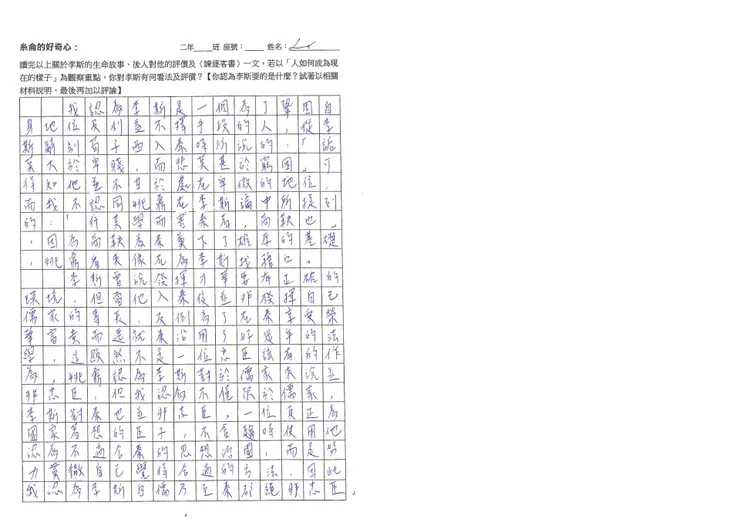 糸侖的好奇心:
二年____班 座號:____ 姓名:
讀完以上關於李斯的生命故事、後人對他的評價及〈諫逐客書〉一文,若以「人如何成為現
在的樣子」為觀察重點,你對李斯有何看法及評價?【你認為李斯要的是什麼?試著以相關
材料說明,最後再加以評論】
我認為李斯是一個為了鞏固自
身地位及利益不擇手段的人,從李
斯辭別荀子西入秦時所說的:「詬
莫大於卑賤,而悲莫甚於窮困。」可
得知他並不甘於處在卑微的地位,
而我不認同姚鼐在李斯論中所提到
的:「行其學而害秦者,商鞅也。」
,因為商鞅為秦奠下了雄厚的基礎
,姚鼐看來像在為李斯找藉口。
李斯曾說發揮才華要有正確的
環境,但當他入秦後並非發揮自己
儒家的專長,反倒為了在秦享受榮
華富貴而選就秦沿用了好幾年的法
學,這顯然不是一位忠臣該有的作
為,姚鼐認為李斯對於儒家來說並
非忠臣,但我認為不僅於儒家,
李斯對秦也並非忠臣,一位真正為
國家著想的臣子,不會趨時使用他
認為不適合秦的思想治國,而是努
力貫徹自己覺得合適的方法,因此
我認為李斯自儒乃至秦都絕非忠臣。